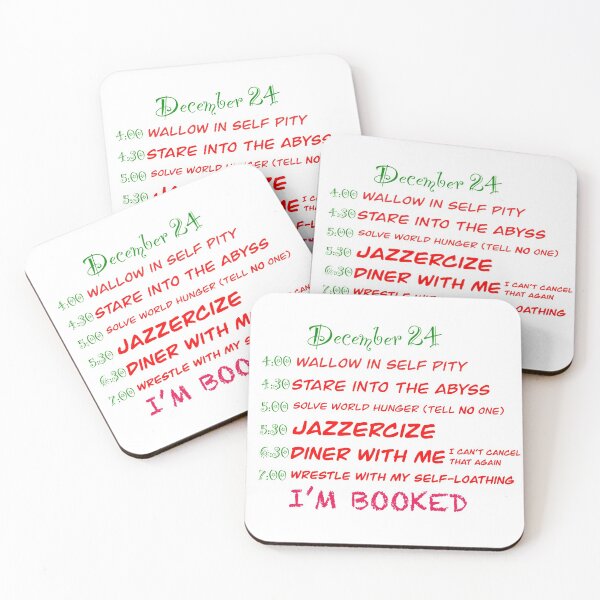 December 24
4:00 WALLOW IN SELF PITY
4:30 STARE INTO THE ABYSS
5:00 SOLVE WORLD HUNGER (TELL NO
December 24
4:00 WALLOW IN SELF PITY
4:30 STARE INTO THE ABYSS
5:00 SOLVE WORLD HUNGER (TELL NO ONE)
5:30 JAZZERCIZE
6:30 DINER WITH ME I CAN'T CANCEL
THAT AGAIN
7:00
December 24
4:00 WALLOW IN SELF PITY
4:30 STARE INTO THE ABYSS
5:00 SOLVE WORLD HUNGER (TELL NO ONE)
5:30 JAZZERCIZE
6:30 DINER WITH ME
7:00 WRESTLE WITH MY
I'M
December 24
4:00 WALLOW IN SELF PITY
4:30 STARE INTO THE ABYSS
5:00 SOLVE WORLD HUNGER (TELL NO ONE)
5:30 JAZZERCIZE
6:30 DINER WITH ME I CAN'T CANCEL
THAT AGAIN
7:00 WRESTLE WITH MY SELF-LOATHING
I'M BOOKED